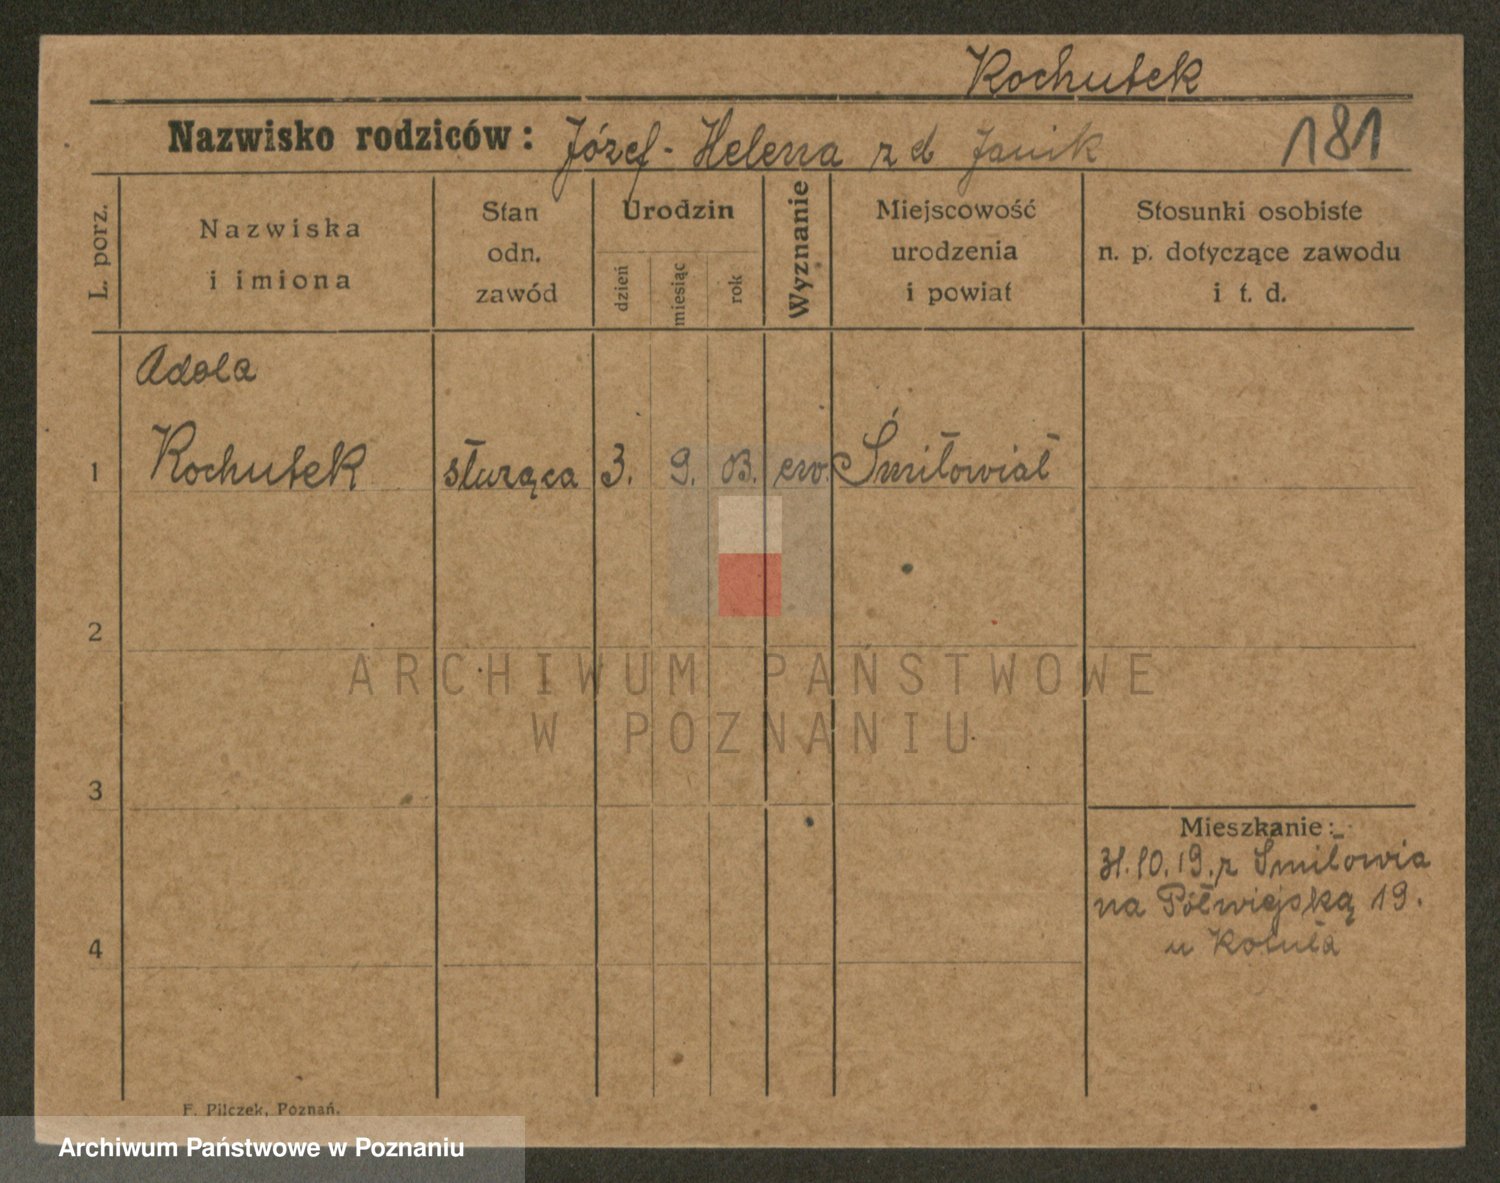 Kochutek
Nazwisko rodziców: Józef - Helena z d Janik 181
L. porz.
Nazwiska
i imiona
Stan
odn.
zawód
Urodzin
dzień
miesiąc
rok
Wyznanie
Miejscowość
urodzenia
i powiat
Stosunki osobiste
n. p. dotyczące zawodu
i t. d.
Adela
1 Kochutek służąca 3. 9. 03. ew. Śmiłowiat
2
ARCHIWUM PAŃSTWOWE
W POZNANIU
3
Mieszkanie:
31.10.19. z Śmiłowia
na Półwiejską 19.
4
u Kotuła
F. Pilczek, Poznań.
Archiwum Państwowe w Poznaniu